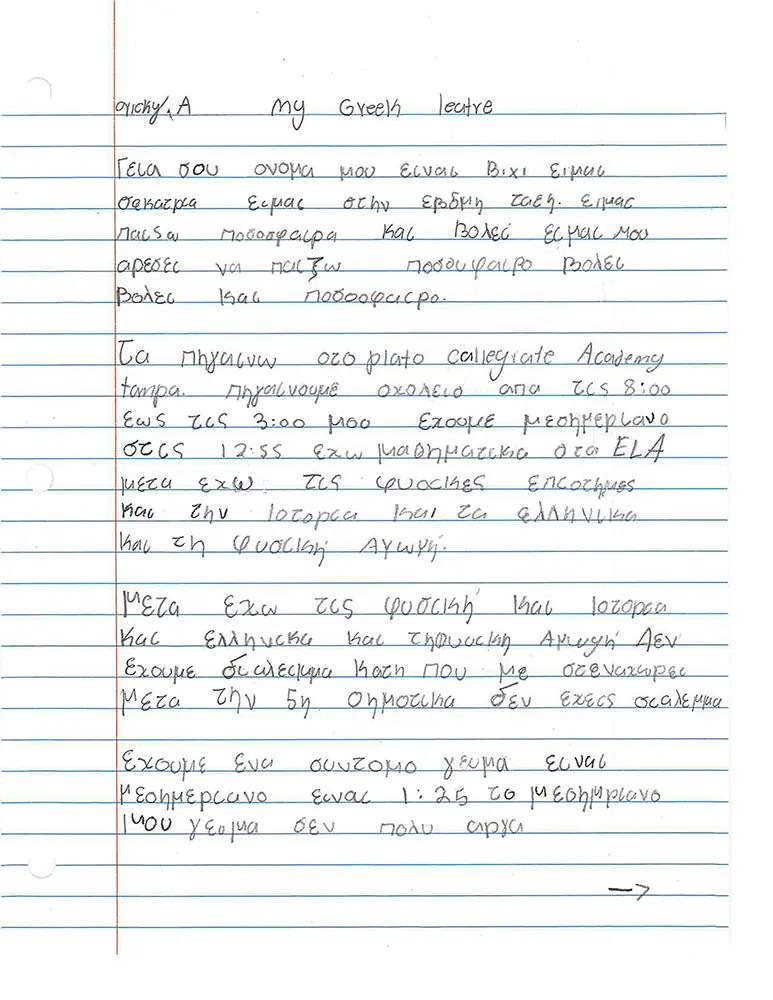 vicky, A My Greek leatre
Γεια σου ονομα μου ειναι Βιχι ειμαι
σεκατρια ειμαι στην ερδμη ταξη. ειμαι
παιζω ποδοσφαιρα και βολει ειμαι μου
αρεσει να παιζω ποδουφαιρο βολει
βολει και ποδοσφαιρο.
Τα πηγαινω στο plato callegiate Academy
tampa. πηγαινουμε σχολειο απα τις 8:00
εως τις 3:00 μοο εχουμε μεσημεριανο
στις 12:55 εχω μαθηματικα στα ELA
μετα εχω τις φυσικες επιστημες
και την Ιστορεα και τα ελληνικα
και τη φυσική Αγωγή.
Μετα εχω τις φυσική και Ιστορεα
και ελληνικα και τηφυσικη Αμωγή Δεν
εχουμε διαλειμμα κατη που με στεναχωρει
μετα την 5η δημοτικα δεν εχεις διαλεμμα
Εχουμε ενα συντομο γευμα ειναι
μεσημεριανο ειναι 1:25 το μεσημριανο
μου γεσμα δεν πολυ αργα
→